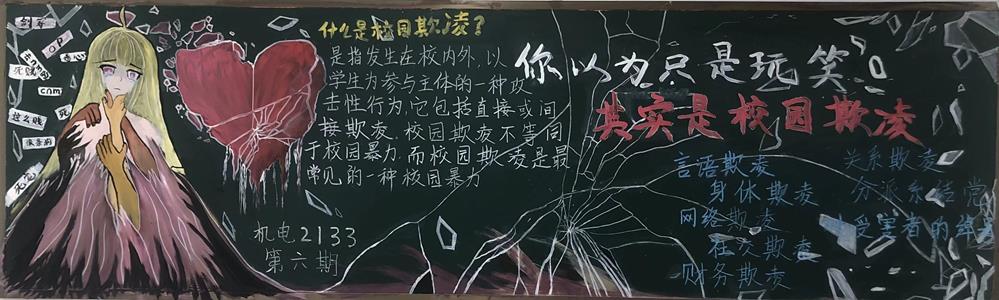 什么是校园欺凌?
是指发生在校内外，以
学生为参与主体的一种攻
击性行为，它包括直接或间
接欺凌、校园欺凌不等同
于校园暴力，而校园欺凌是最
常见的一种校园暴力
机电2133
第六期
你以为只是玩笑
其实是校园欺凌
言语欺凌
身体欺凌
网络欺凌
社交欺凌
财务欺凌
关系欺凌
分派系结党
受害者的
cnm